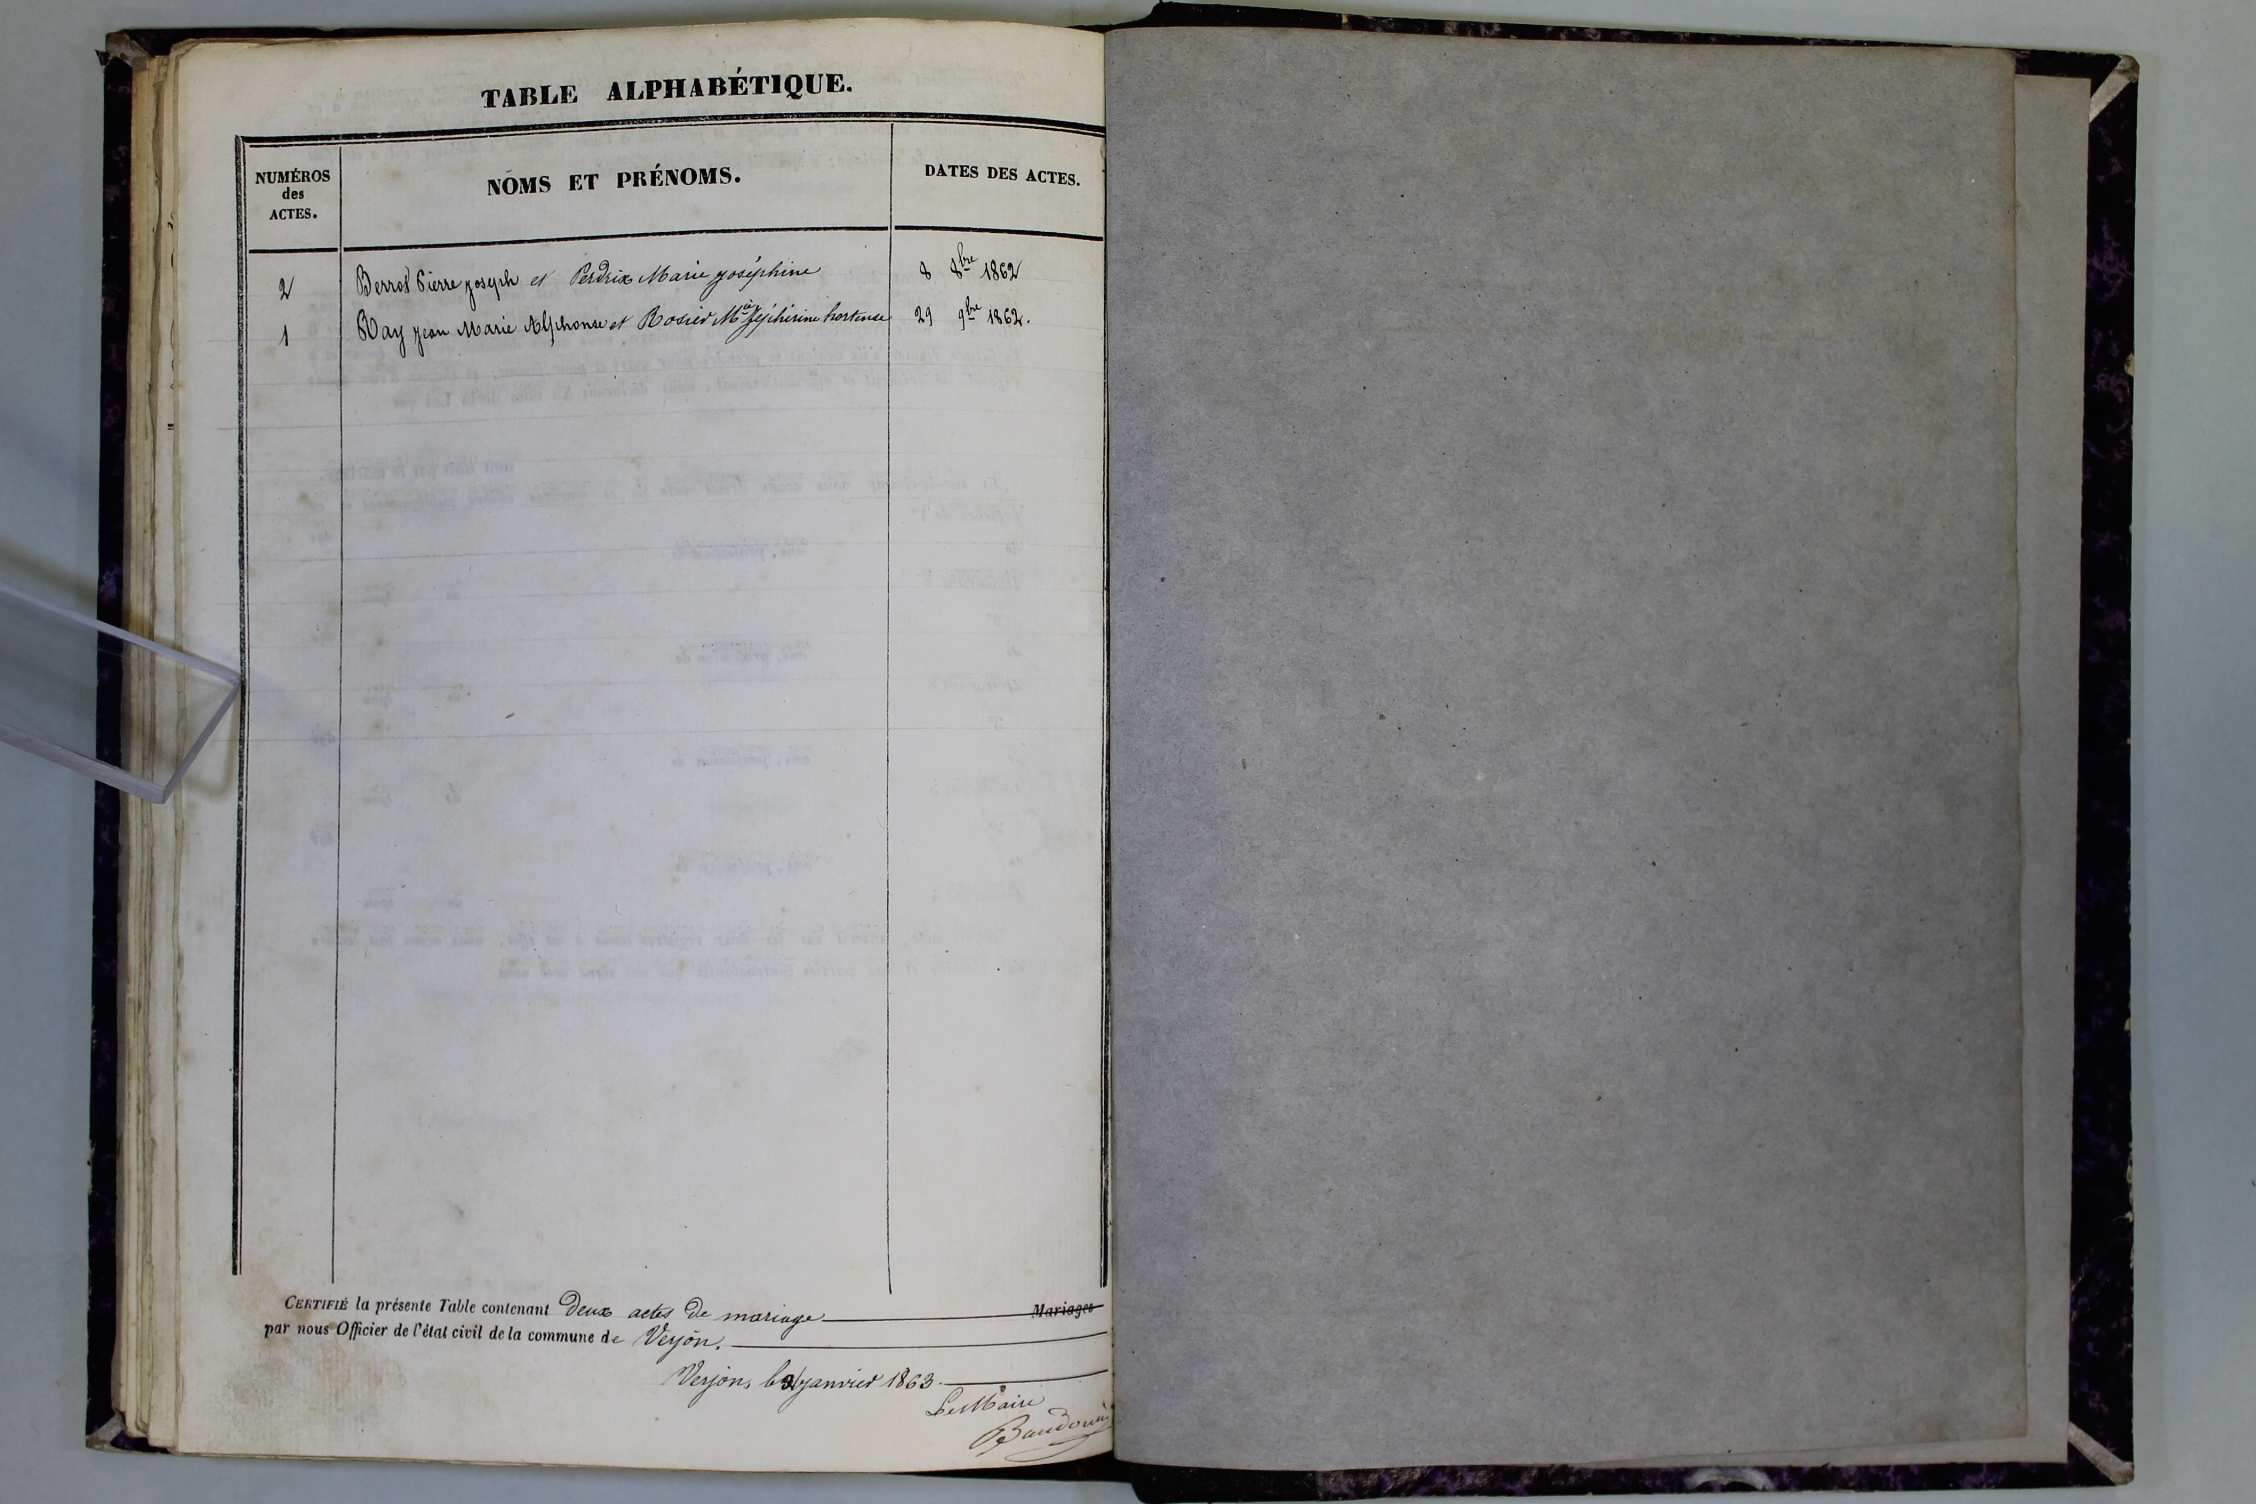 TABLE ALPHABÉTIQUE.
NUMÉROS des ACTES. NOMS ET PRÉNOMS. DATES DES ACTES.
2 Berrod Pierre joseph et Perdrix Marie joséphine 8 8bre 1862
1 Ray jean Marie Alphonse et Rosier Mie Zéphirine hortense 29 9bre 1862.
CERTIFIÉ la présente Table contenant Deux actes De mariage Mariages
par nous Officier de l'état civil de la commune de Verjon.
Verjon, le janvier 1863.
Le Maire
Baudouin